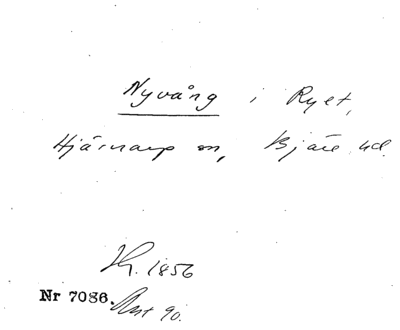 Nyvång i Ryet,
Hjärnarp sn, Bjäre hd.
1856
Nr 7086. Ant 90.